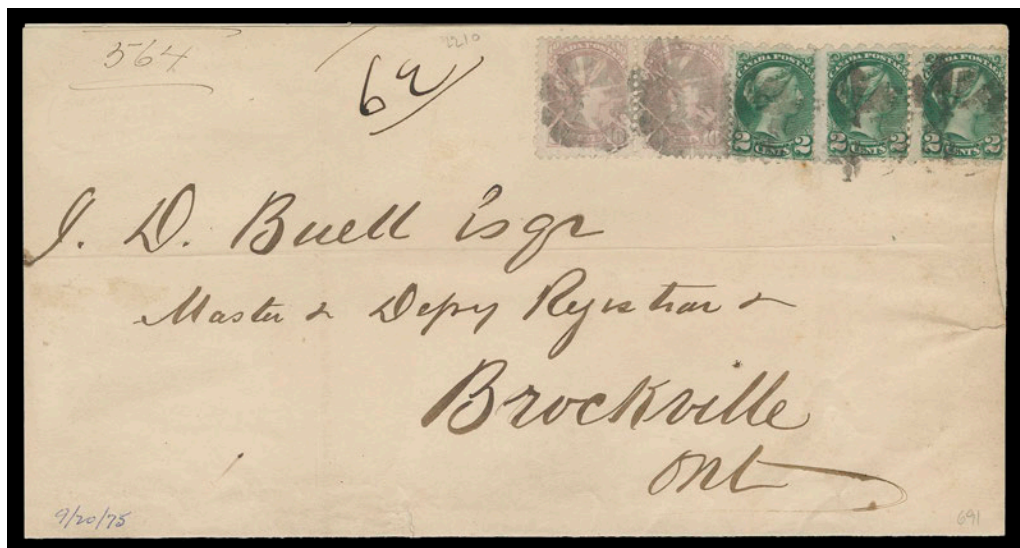 564
2210
62/
CANADA POSTAGE
10
CANADA POSTAGE
2 CENTS 2
CANADA POSTAGE
2 CENTS 2
CANADA POSTAGE
2 CENTS 2
J. D. Buell Esqr
Master & Depy Registrar &
Brockville
Ont
9/20/75
691